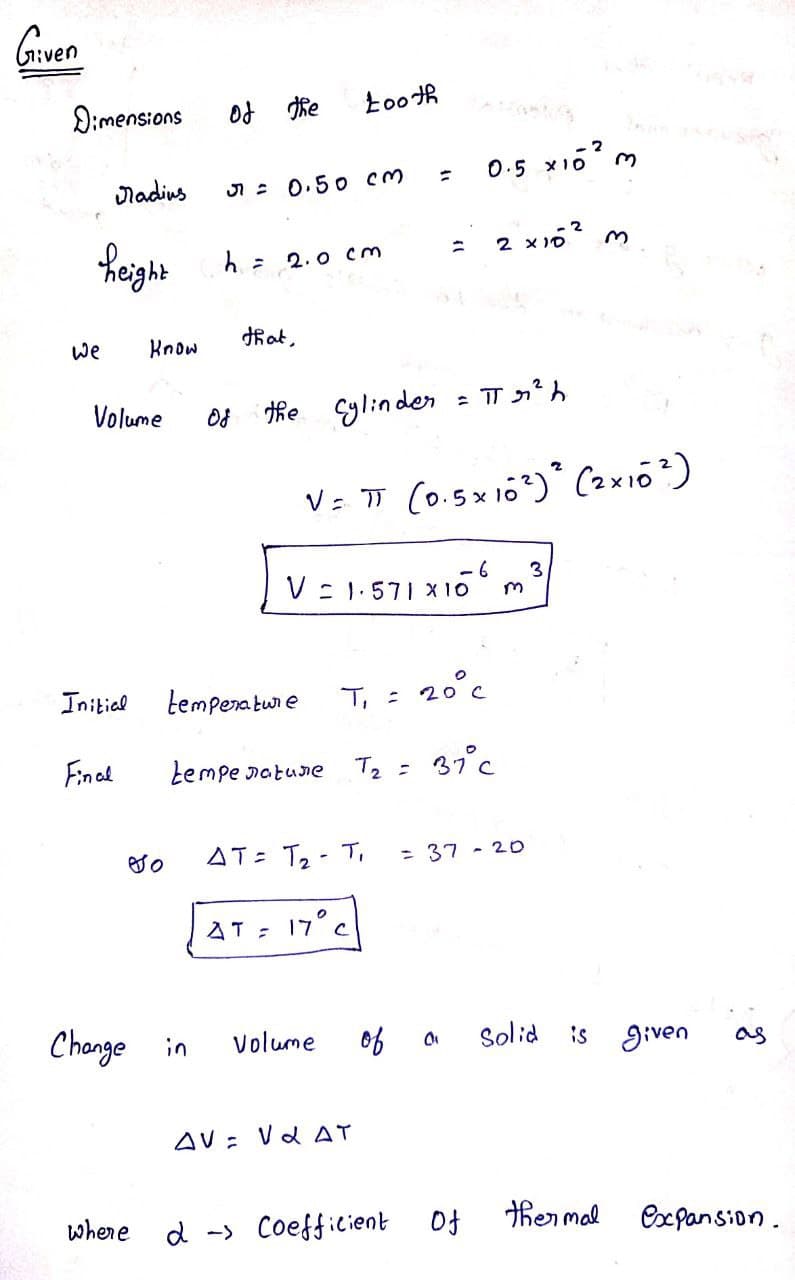 Given
Dimensions of the tooth
radius r = 0.50 cm = 0.5 × 10⁻² m
height h = 2.0 cm = 2 × 10⁻² m
we know that,
Volume of the cylinder = π r² h
V = π (0.5 × 10⁻²)² (2 × 10⁻²)
V = 1.571 × 10⁻⁶ m³
Initial temperature T₁ = 20°C
Final temperature T₂ = 37°C
so ΔT = T₂ - T₁ = 37 - 20
ΔT = 17°C
Change in volume of a solid is given as
ΔV = V α ΔT
where α → coefficient of thermal expansion.